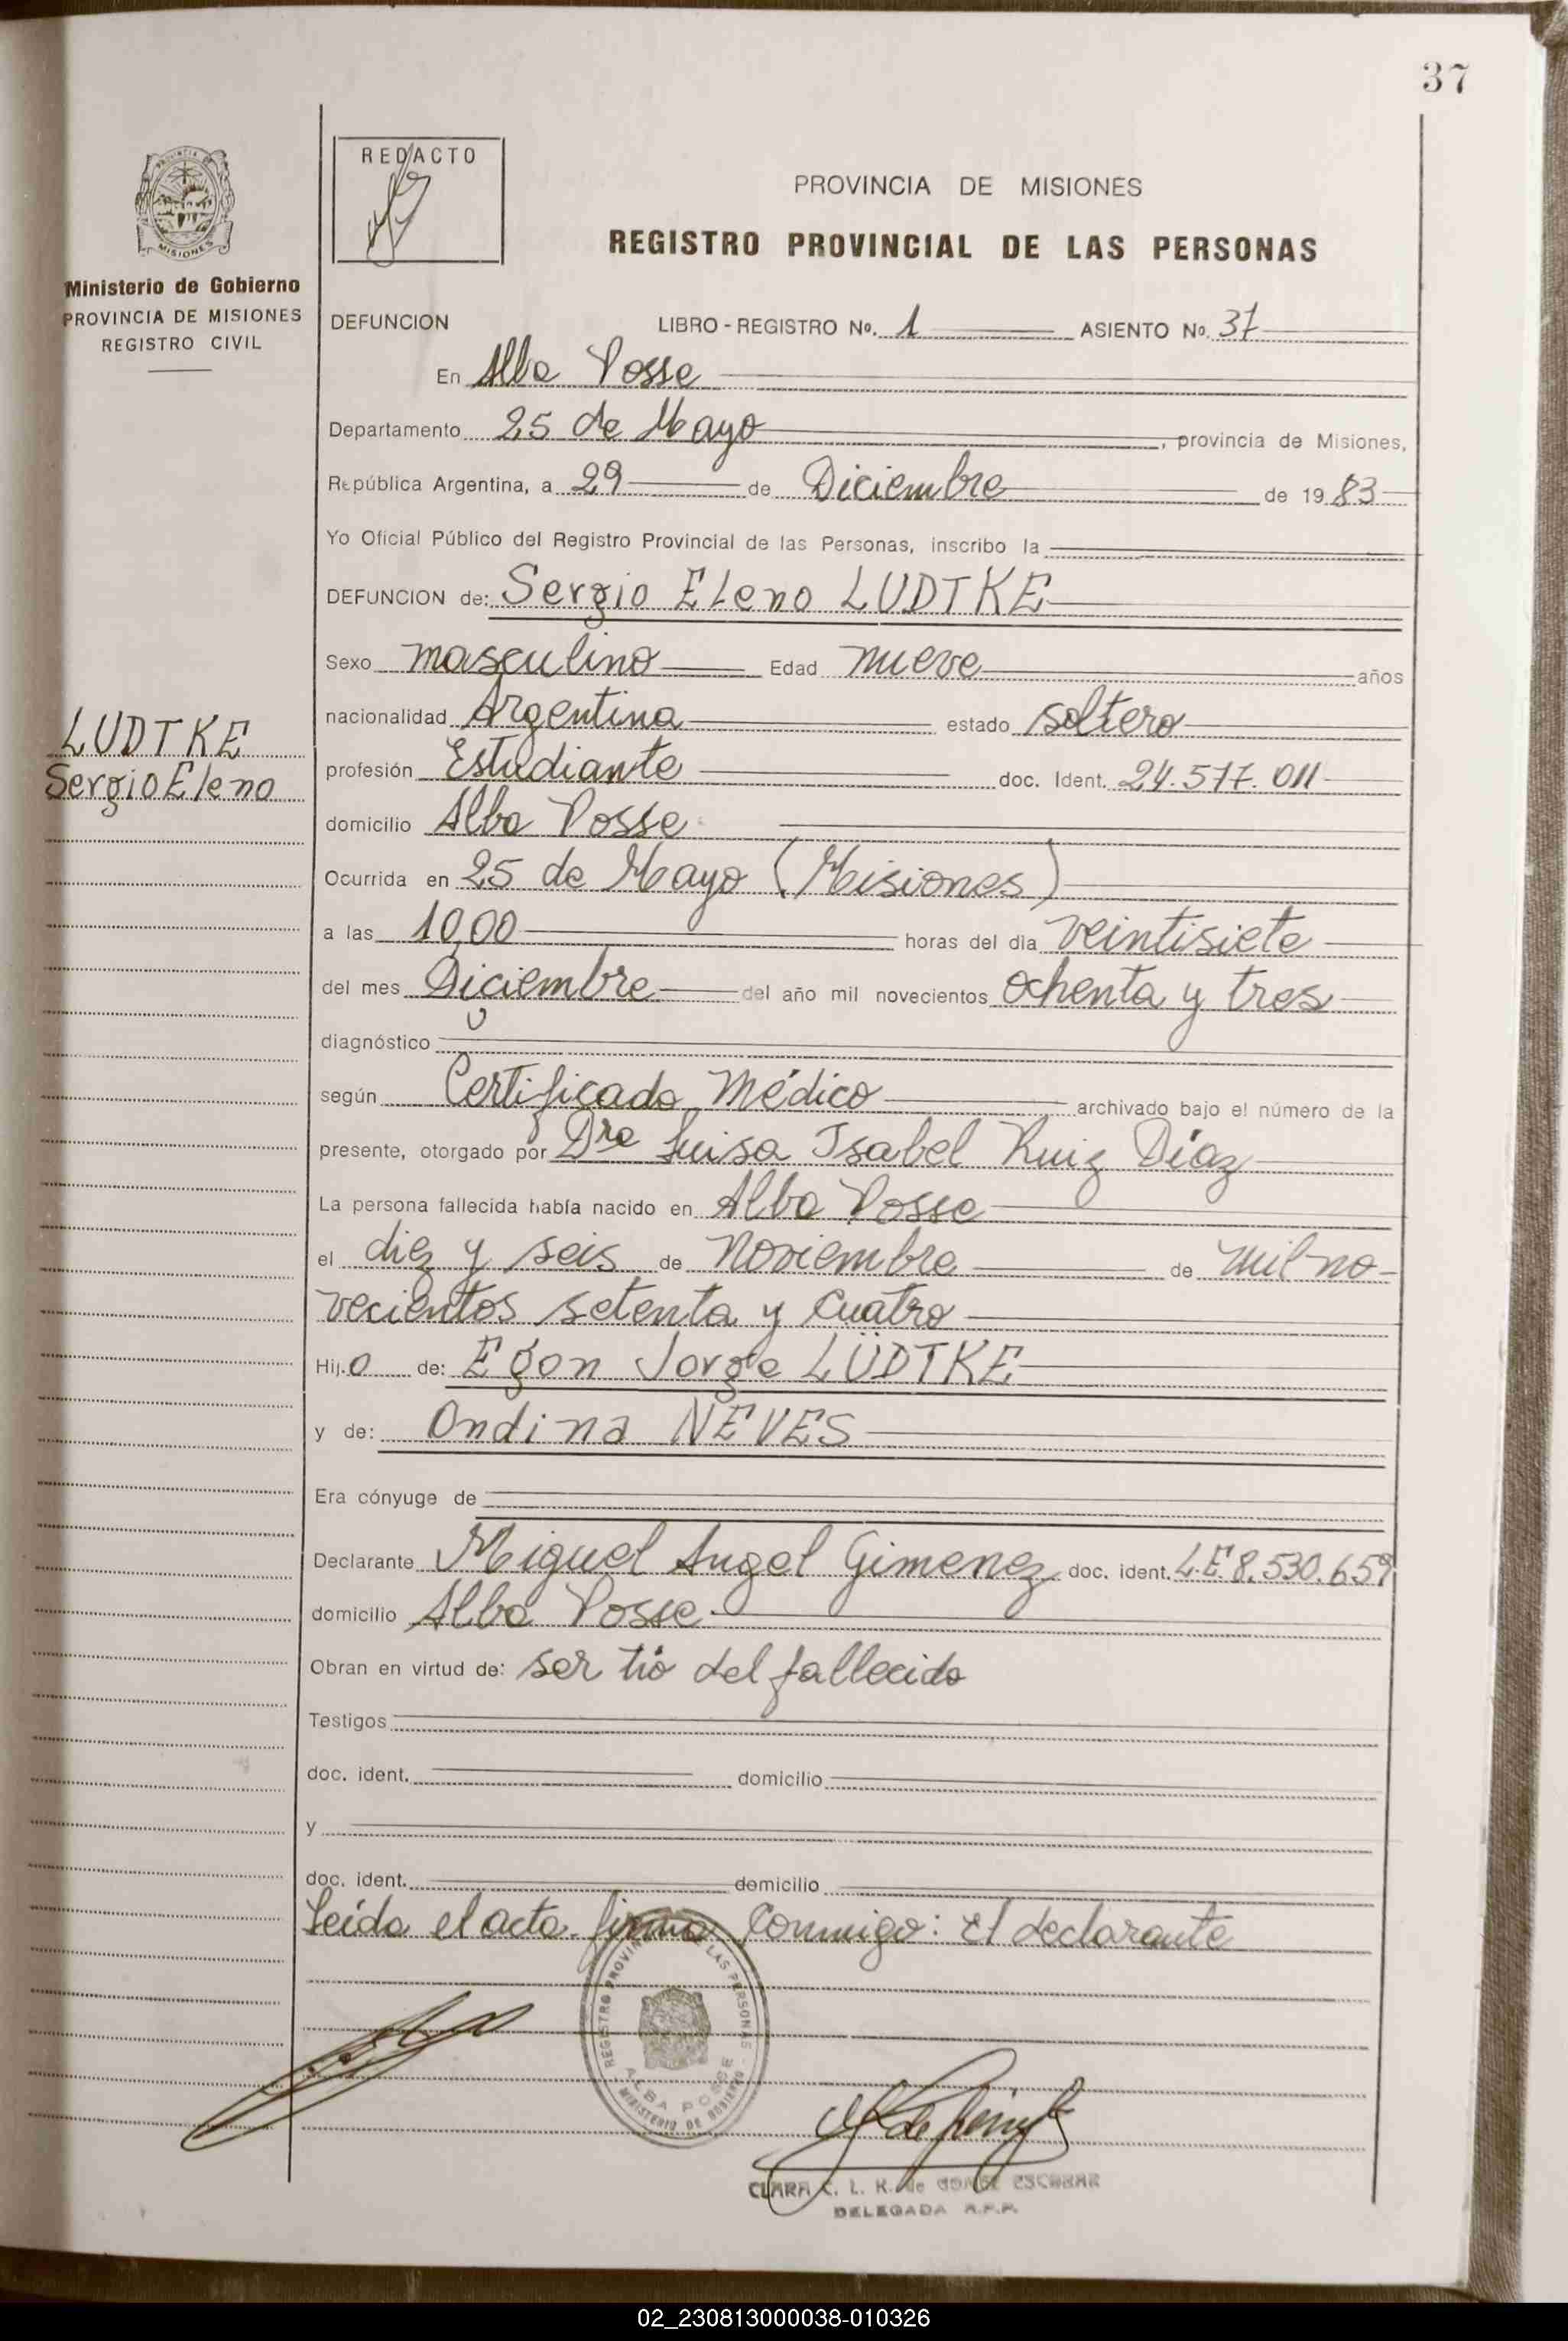 37
REDACTO
PROVINCIA DE MISIONES
REGISTRO PROVINCIAL DE LAS PERSONAS
Ministerio de Gobierno
PROVINCIA DE MISIONES
REGISTRO CIVIL
DEFUNCION LIBRO - REGISTRO No. 1 ASIENTO No. 37
En Alba Posse
Departamento 25 de Mayo, provincia de Misiones,
República Argentina, a 29 de Diciembre de 1983
Yo Oficial Público del Registro Provincial de las Personas, inscribo la
DEFUNCION de: Sergio Eleno LUDTKE
Sexo masculino Edad nueve años
nacionalidad Argentina estado soltero
LUDTKE
Sergio Eleno
profesión Estudiante doc. Ident. 24.577.011
domicilio Alba Posse
Ocurrida en 25 de Mayo (Misiones)
a las 10,00 horas del día veintisiete
del mes Diciembre del año mil novecientos ochenta y tres
diagnóstico
según Certificado Médico archivado bajo el número de la
presente, otorgado por Dra Luisa Isabel Ruiz Díaz
La persona fallecida había nacido en Alba Posse
el diez y seis de Noviembre de mil no-
vecientos setenta y cuatro
Hijo de: Egon Jorge LÜDTKE
y de: Ondina NEVES
Era cónyuge de
Declarante Miguel Angel Gimenez doc. ident. L.E. 8.530.659
domicilio Alba Posse
Obran en virtud de: ser tío del fallecido
Testigos
doc. ident. domicilio
y
doc. ident. domicilio
Leída el acta, firma conmigo: El declarante
REGISTRO PROVINCIAL DE LAS PERSONAS
ALBA POSSE
MINISTERIO DE GOBIERNO
CLARA C. L. K. de GOMEZ ESCOBAR
DELEGADA R.P.P.
02_230813000038-010326